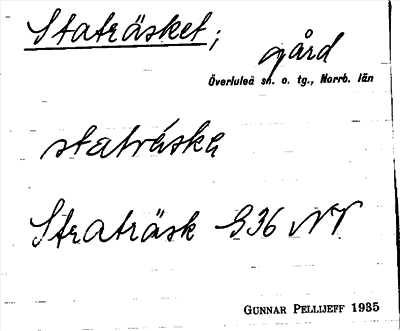 Staträsket;
gård
Överluleå sn. o. tg., Norrb. län
staträska
Straträsk G36 NV
GUNNAR PELLIJEFF 1935